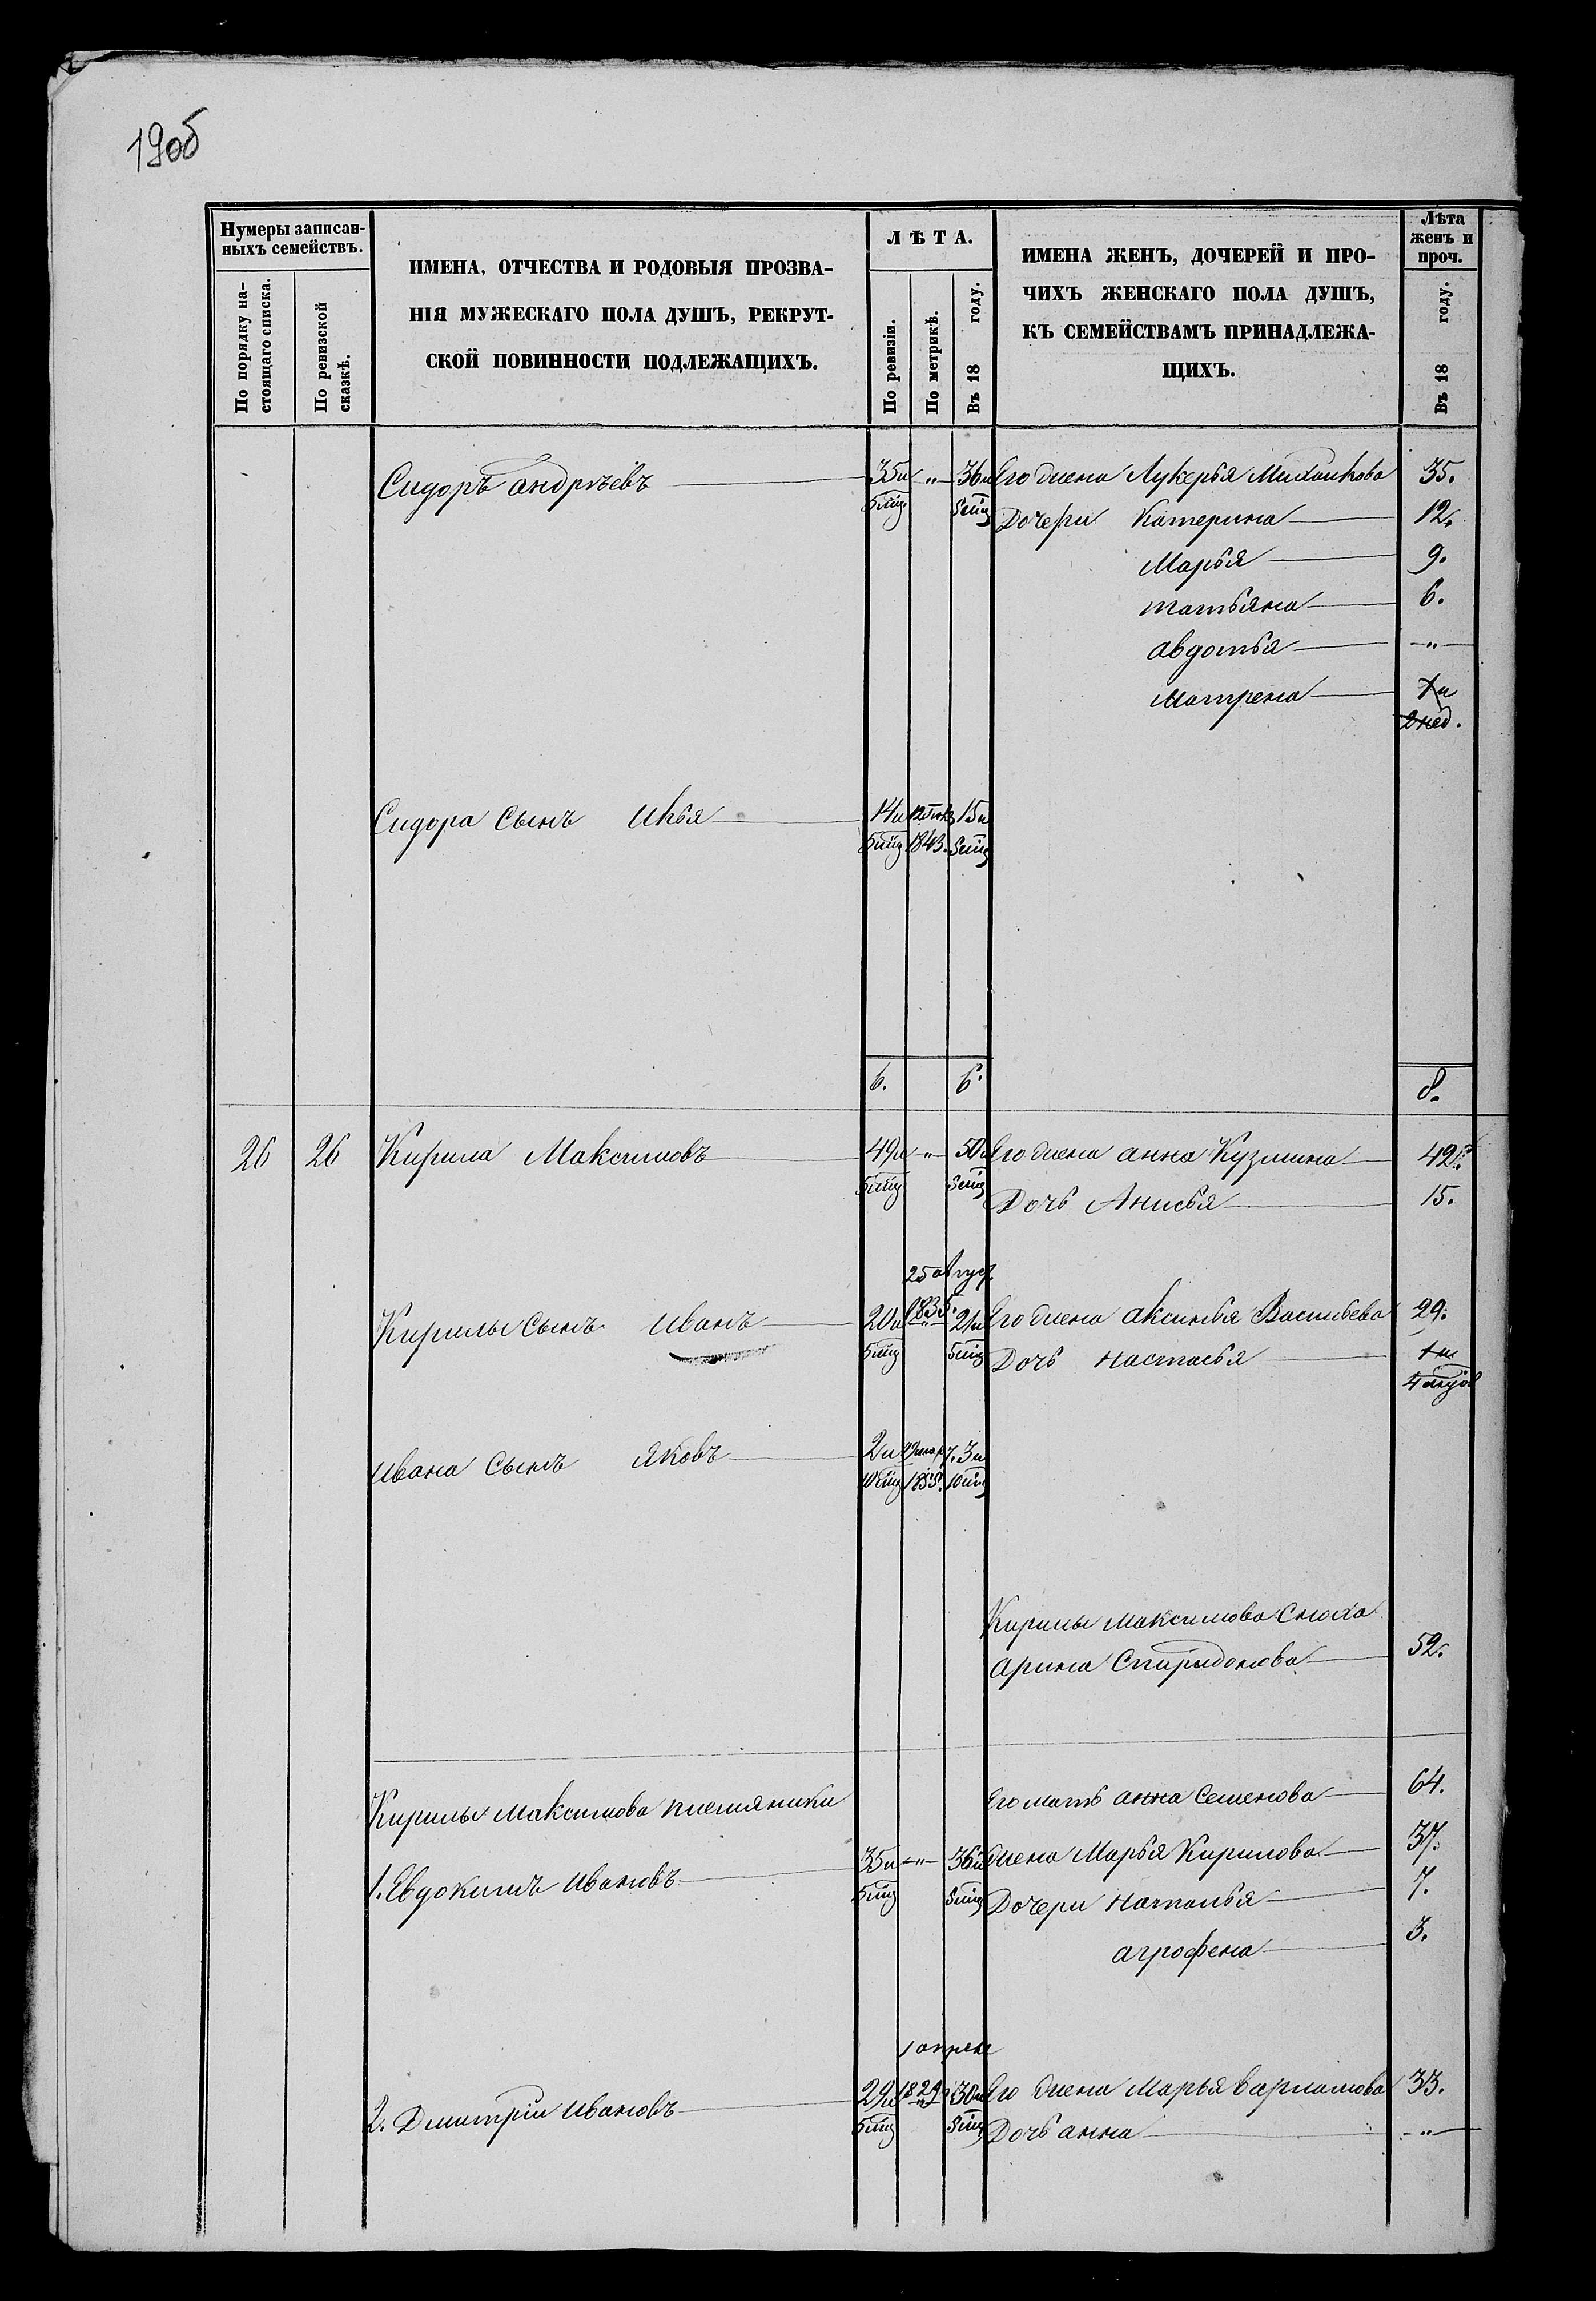 190б
Нумеры записан-
ныхъ семействъ.
По порядку на-
стоящаго списка.
По ревизской
сказкѣ.
ИМЕНА, ОТЧЕСТВА И РОДОВЫЯ ПРОЗВА-
НІЯ МУЖЕСКАГО ПОЛА ДУШЪ, РЕКРУТ-
СКОЙ ПОВИННОСТИ ПОДЛЕЖАЩИХЪ.
ЛѢТА.
По ревизіи.
По метрикѣ.
Въ 18 году.
ИМЕНА ЖЕНЪ, ДОЧЕРЕЙ И ПРО-
ЧИХЪ ЖЕНСКАГО ПОЛА ДУШЪ,
КЪ СЕМЕЙСТВАМЪ ПРИНАДЛЕЖА-
ЩИХЪ.
Лѣта
женъ и
проч.
Въ 18 году.
Сидоръ андрѣевъ 35и „ 36и Его жена Лукерья Михайлова 35.
5мц 5мц Дочери Катерина 12.
Марья 9.
татьяна 6.
авдотья „
Матрена 1и
2нед.
Сидора Сынъ Илья 14и 15и
5мц 1843. 5мц
6. 6. 8.
26 26 Кирила Максимовъ 49и „ 50и Его жена анна Кузмина 42.
5мц 5мц Дочь Анисья 15.
25 август.
Кирилы Сынъ Иванъ 20и 1835. 21и Его жена аксинья Васильева 29.
5мц 5мц Дочь настасья 1и
4
ивана Сынъ яковъ 2и 3и
10мц 1855. 10мц
Кирилы максимова Сноха
арина Спиридонова 52.
Кирилы Максимова племяники Его мать анна Семенова 64.
1. Евдокимъ ивановъ 35и „ 36и жена Марья Кирилова 37.
5мц 5мц Дочери наталья 7.
агрофена 3.
1 апреля
2. Дмитріи ивановъ 29и 1829 30и Его жена Марья варламова 33.
5мц 5мц Дочь анна „